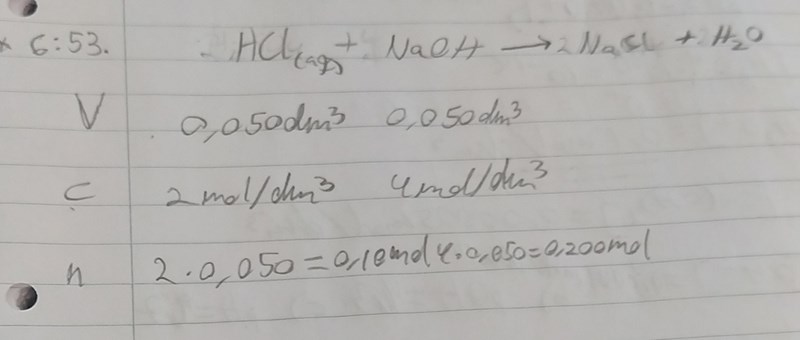 * 6:53. HCl(aq) + NaOH → NaCl + H₂O
V 0,050dm³ 0,050dm³
C 2mol/dm³ 4mol/dm³
n 2·0,050=0,10mol 4·0,050=0,200mol